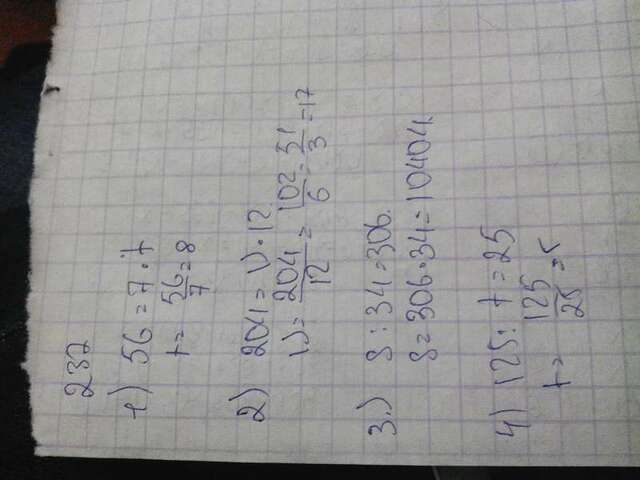 237
1) 56 = 7 · t
t = 56/7 = 8
2) 204 = υ · 12
υ = 204/12 = 102/6 = 51/3 = 17
3.) S : 34 = 306.
S = 306 · 34 = 10404.
4) 125 : t = 25
t = 125/25 = 5